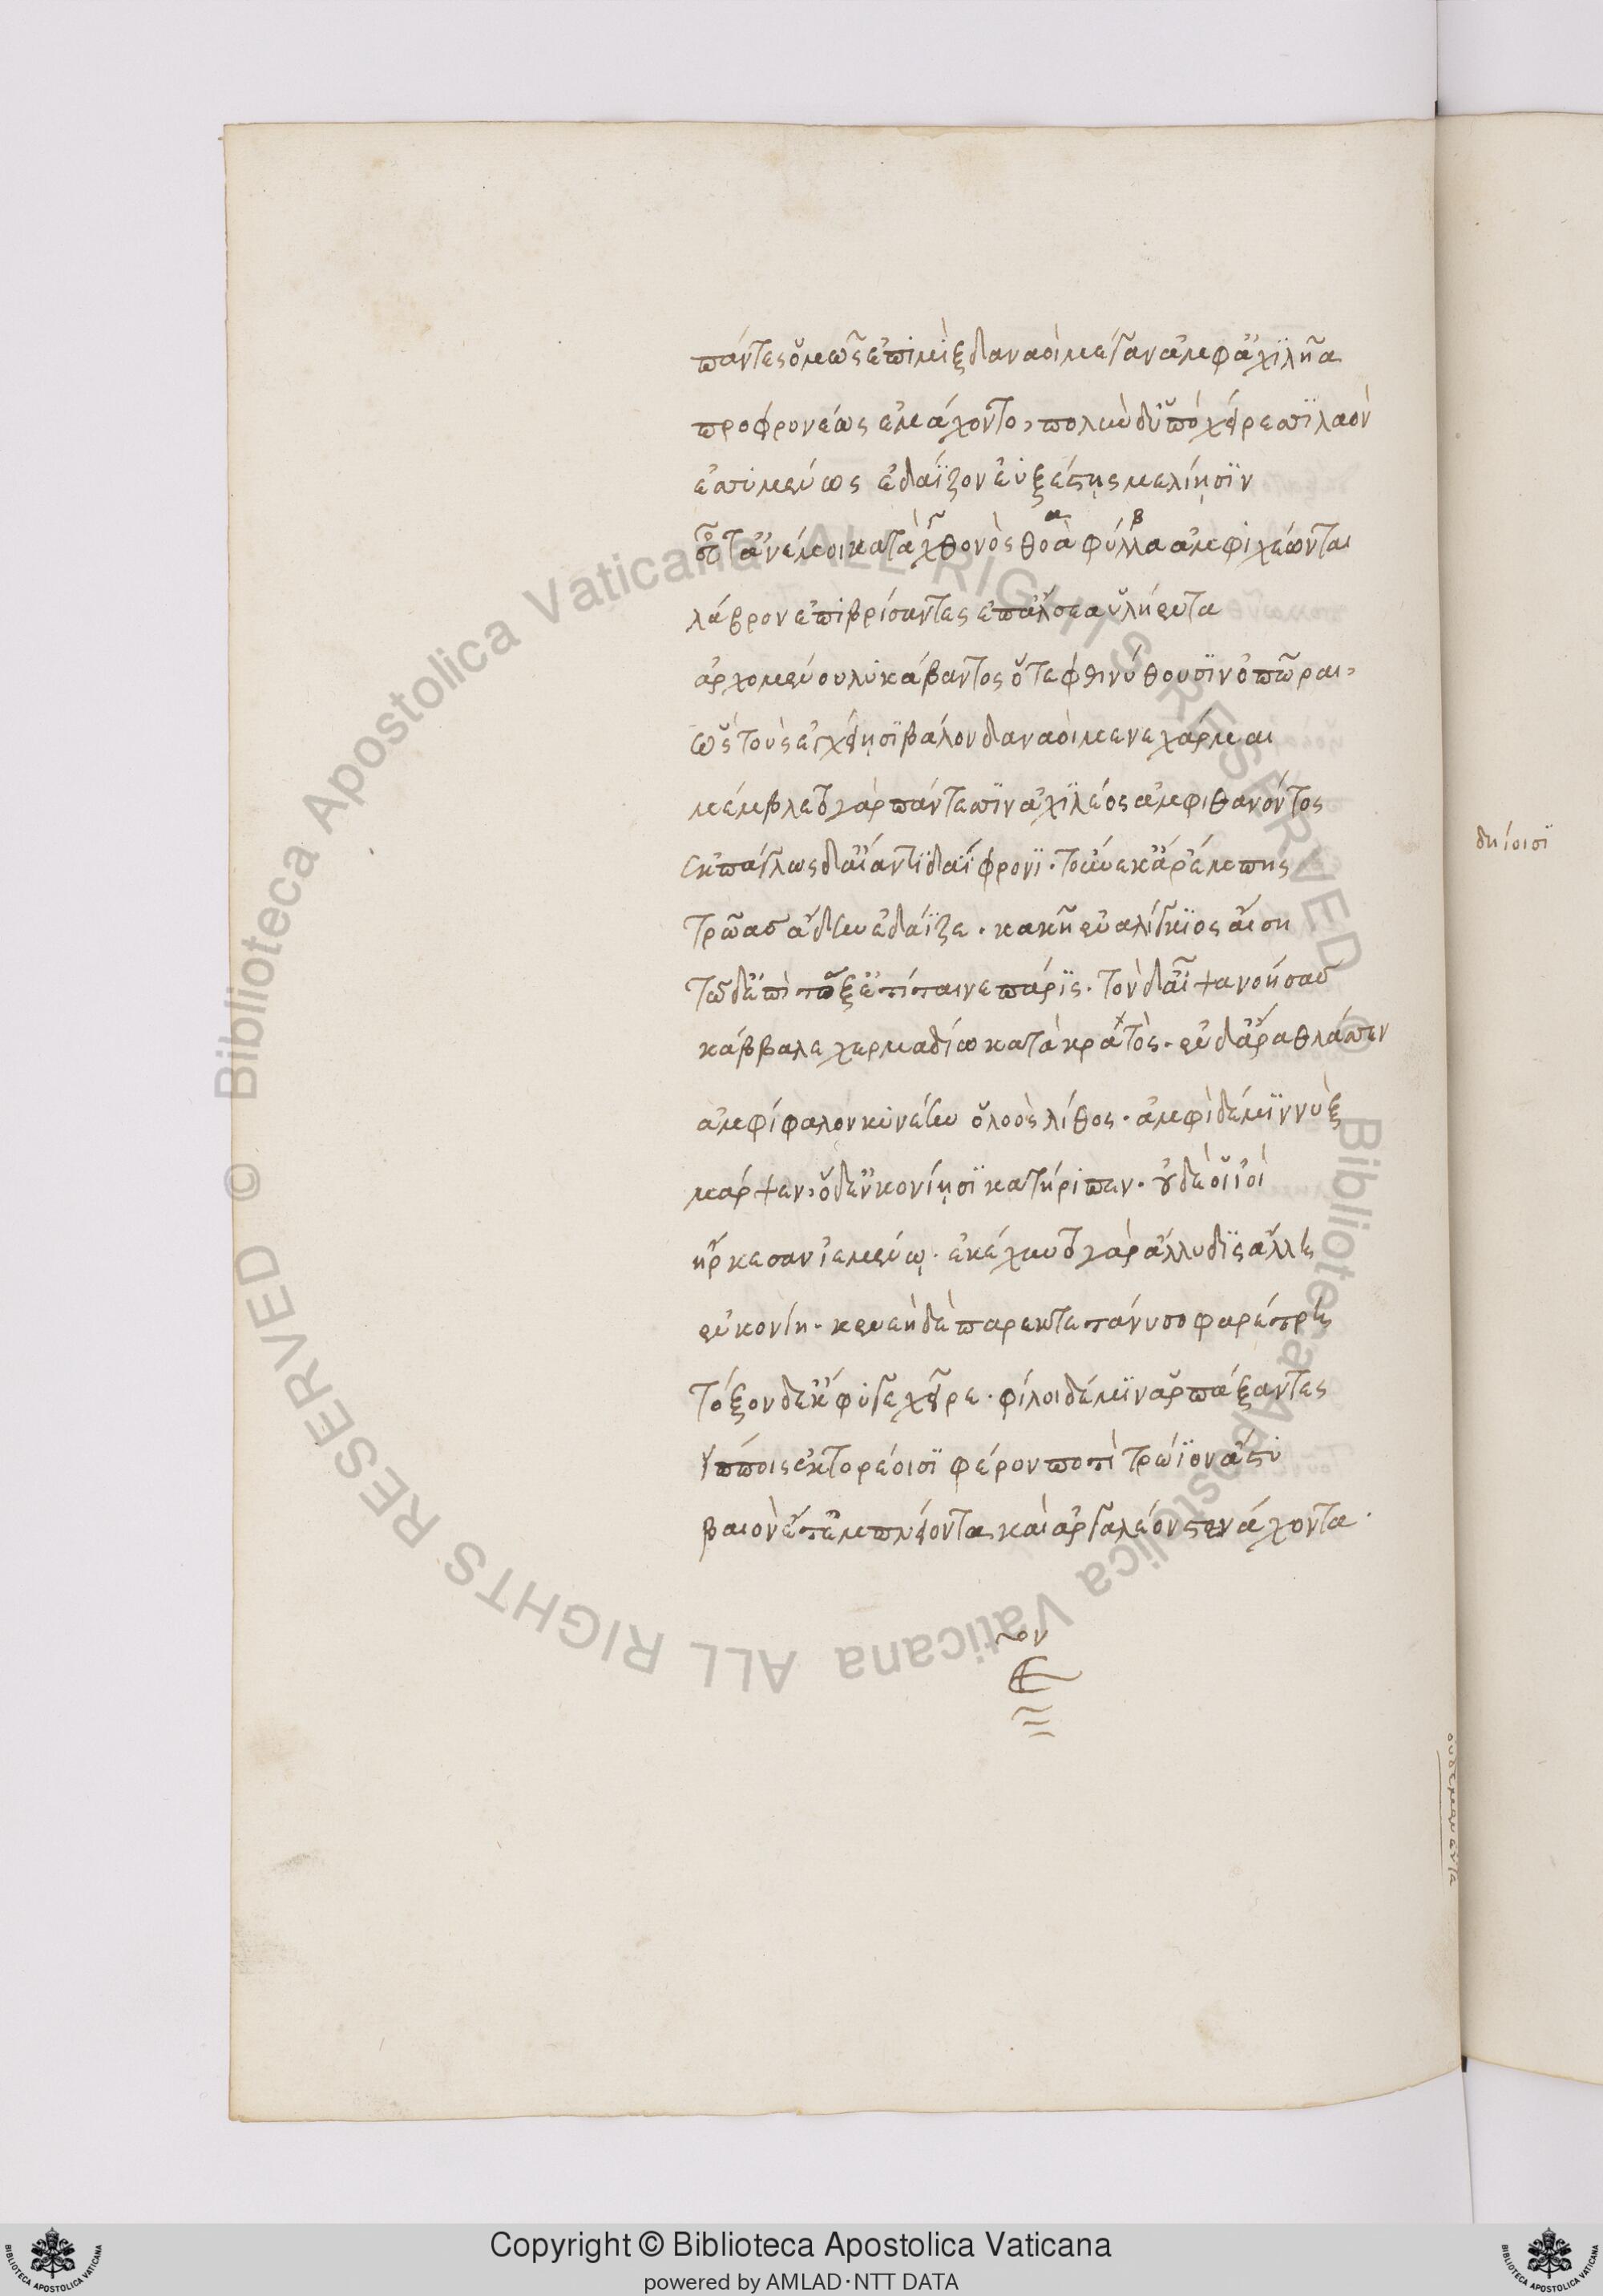 πάντες ὁμῶς ἐπιμὶξ δαναοὶ μέγαν ἀμφ' ἀχιλῆα
προφρονέως ἐμάχοντο, πολὺν δ' ὑπὸ χείρεσι λαὸν
ἐσσυμένως ἐδάϊζον ἐϋξέστῃς μελίῃσιν
οἷά τ' ἄνεμοι κατὰ χθονὸς θοὰ φύλλα ἀμφιχέωνται
λάβρον ἐπιβρίσαντες ἐπ' ἄλσεα ὑλήεντα
ἀρχομένου λυκάβαντος ὅτε φθινύθουσιν ὀπῶραι,
ὣς τοὺς ἐγχείῃσι βάλον δαναοὶ μενεχάρμαι
μέμβλετο γὰρ πάντεσσιν ἀχιλέος ἀμφὶ θανόντος
ἐκπάγλως δ' αἴαντι δαΐφρονι. τοὔνεκ' ἄρ' ἔμπης
τρῶας ἄδην ἐδάϊζε. κακῇ ἐναλίγκιος αἴσῃ
τῷ δ' ἐπὶ τόξ' ἐτίταινε πάρις. τὸν δ' αἶψα νοήσας
κάββαλε χερμαδίῳ κατὰ κρατὸς. ἐν δ' ἄρ' ἔθλασσεν
ἀμφίφαλον κυνέην ὀλοὸς λίθος. ἀμφὶ δέ μιν νὺξ
μάρψεν, ὁ δ' ἐν κονίῃσι κατήριπεν. οὐδέ οἱ ἰοὶ
ἤρκεσαν ἱεμένῳ. ἐκέχυντο γὰρ ἄλλυδις ἄλλῃ
ἐν κονίῃ. κενεὴ δὲ παρεκτετάνυστο φαρέτρη
τόξον δ' ἔκφυγε χεῖρε. φίλοι δέ μιν ἁρπάξαντες
ἵπποις ἑκτορέοισι φέρον ποτὶ τρώϊον ἄστυ
βαιὸν ἔτ' ἐμπνείοντα καὶ ἀργαλέον στενάχοντα.
δηίοισι